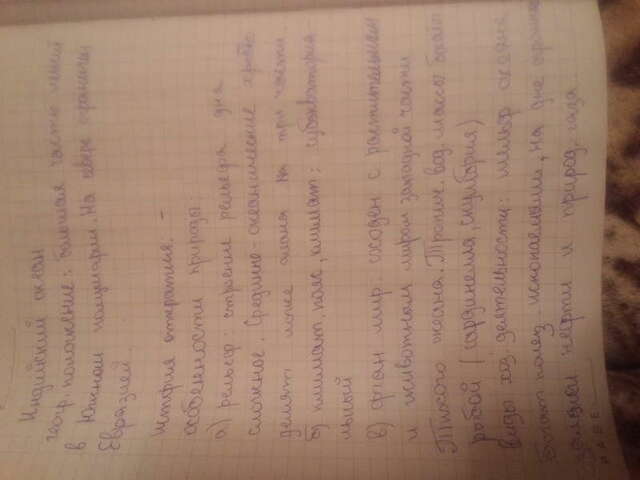 Индийский океан
геогр. положение: большая часть лежит
в Южном полушарии. На севере ограничен
Евразией.
История открытия. -
особенности природы:
а) рельеф: строение рельефа дна
сложное. Срединно-океанические хребты
делят ложе океана на три части.
б) климат. пояс, климат: субэкваториа-
льный
в) орган мир: сходен с растительным
и животным миром западной части
Тихого океана. Тропич. вод. массы богаты
рыбой (сардинелла, скумбрия)
виды хоз. деятельности: шельф океана
богат полез. ископаемыми, на дне огромные
залежи нефти и природ. газа